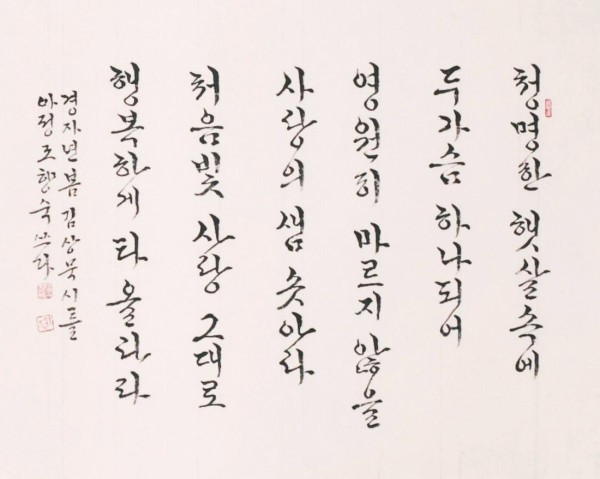 청명한 햇살속에
두가슴 하나되어
영원히 마르지 않을
사랑의 샘 솟아라
처음빛 사랑 그대로
행복하게 타 올라라
경자년 봄 김상묵 시를
아정 조행숙 쓰다